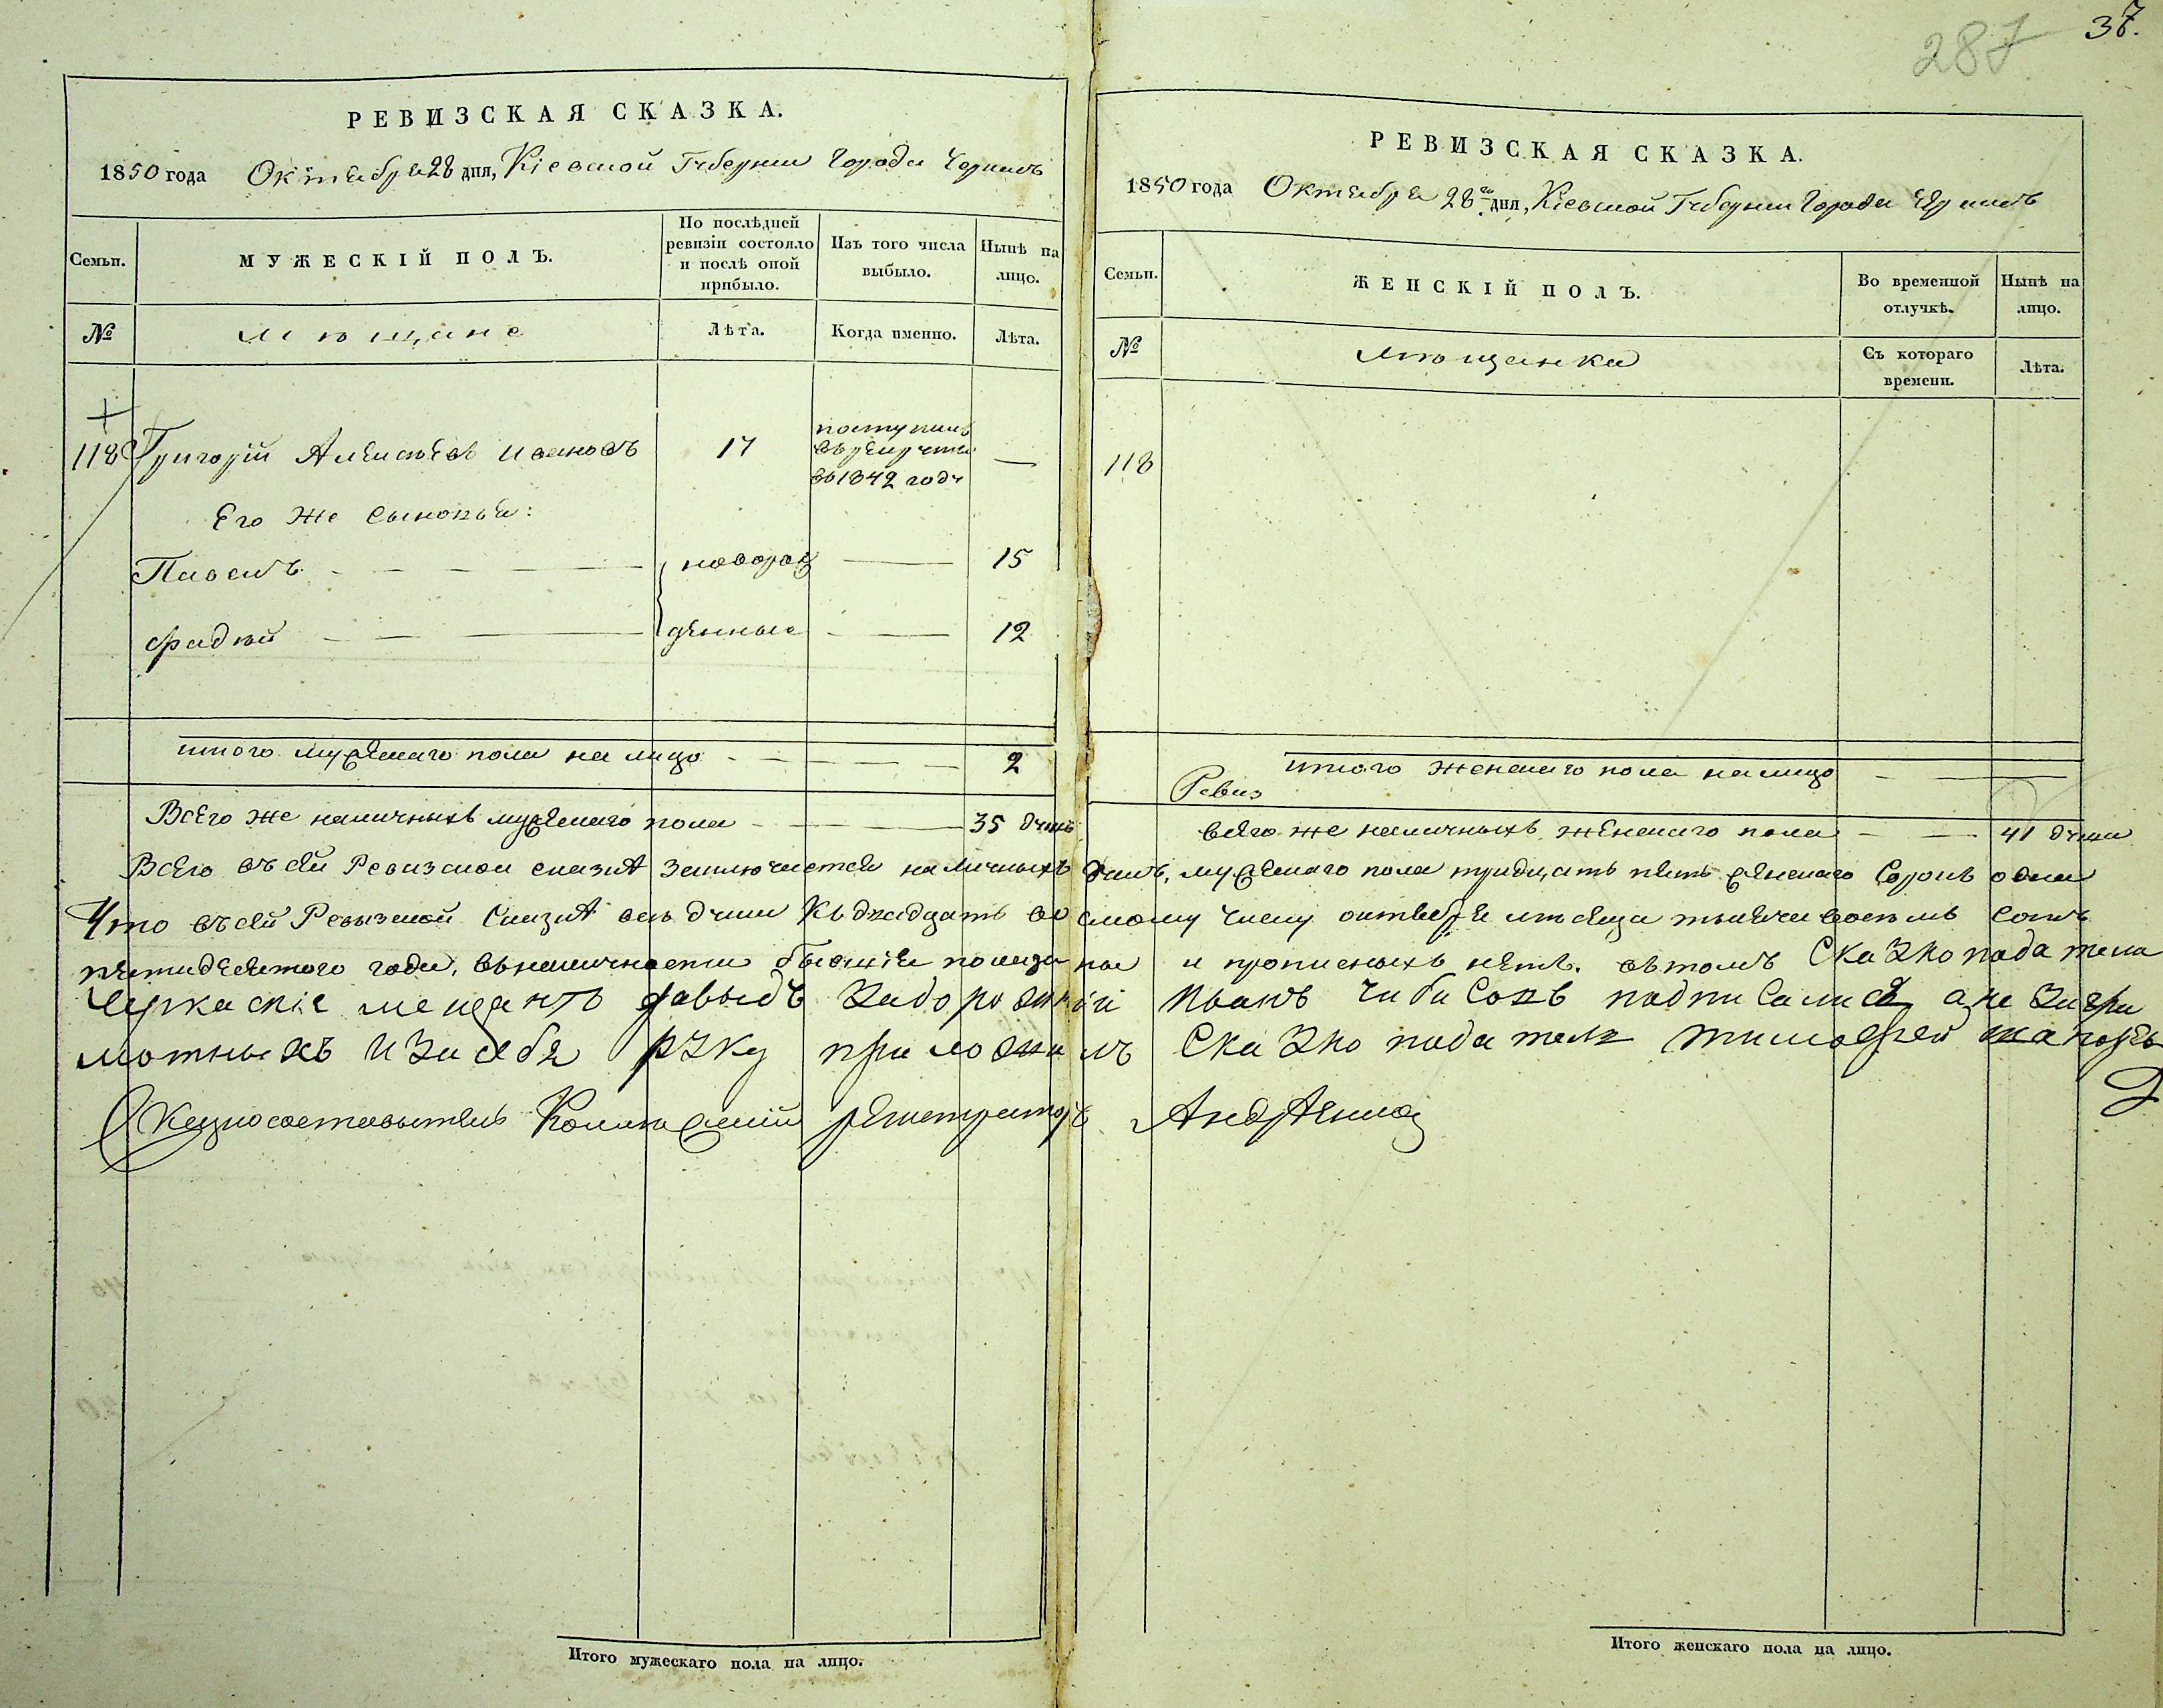 287 37.
РЕВИЗСКАЯ СКАЗКА.
1850 года Октября 28 дня, Кіевской Губерніи Города Черкасъ
Семьи.
МУЖЕСКІЙ ПОЛЪ.
По послѣдней ревизіи состояло и послѣ оной прибыло.
Изъ того числа выбыло.
Нынѣ на лицо.
№
мѣщане
Лѣта.
Когда именно.
Лѣта.
118 Григорій Алексѣевъ Ивановъ 17 поступилъ въ рекруты въ 1842 году —
Его же сыновья:
Павелъ новорож 15
Фадѣй денные 12
итого мужескаго пола на лицо 2
Всего же наличныхъ мужескаго пола 35 душъ
РЕВИЗСКАЯ СКАЗКА.
1850 года Октября 28го дня, Кіевской Губерніи Города Черкасъ
Семьи.
ЖЕНСКІЙ ПОЛЪ.
Во временной отлучкѣ.
Нынѣ на лицо.
№
мѣщанки
Съ котораго времени.
Лѣта.
118
итого женскаго пола на лицо
Ревиз
всего же наличныхъ женскаго пола 41 душа
Всего въ сей Ревизской сказкѣ заключается наличныхъ душъ, мужескаго пола тридцать пять женскаго Сорокъ одна
Что въ сей Ревизской Сказкѣ всѣ души къ двадцать восмому числу октября мѣсяца тысяча восемь сотъ
пятидесятого года, въ наличности бывшіе показаны и прописныхъ нѣтъ. въ томъ Сказкоподатели
Черкаскіе мещанѣ Давыдъ Задорожній Иванъ Чибисовъ подписалися а не за гра
мотныхъ и за себя руку приложилъ Сказкоподатель Тимофей
Сказкосоставитель Коллежскій регистраторъ
Итого мужескаго пола на лицо.
Итого женскаго пола на лицо.